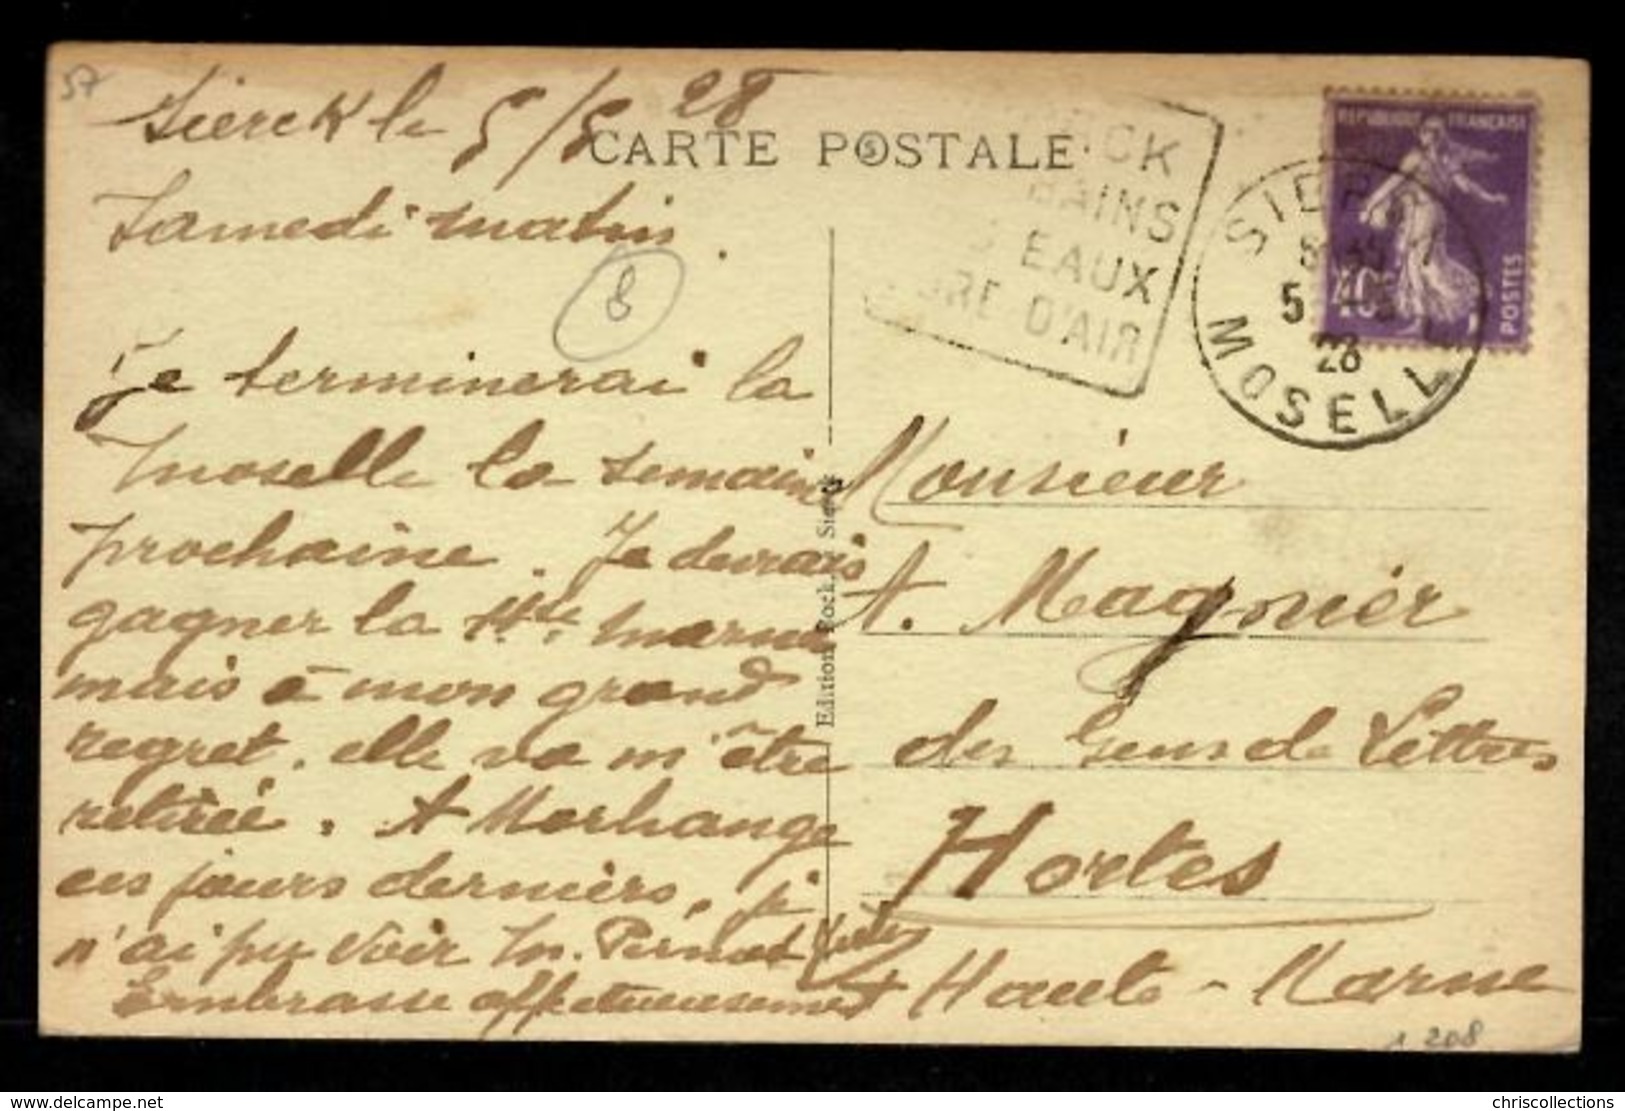 57
Sierck le 5/5 28
Samedi matin.
8
Je terminerai la
Moselle la semaine
prochaine. Je devrais
gagner la Hte. Marne
mais à mon grand
regret, elle va m'être
retirée. A Morhange
ces jours derniers, je
n'ai pu voir M. Pernot
Embrasse affectueusement
CARTE POSTALE
Edition Rock, Sierck
CK
BAINS
EAUX
D'AIR
SIERCK
5 -5
28
MOSELLE
REPUBLIQUE FRANÇAISE
40c
POSTES
Monsieur
A. Magnier
des Gens de Lettres
Hortes
Haute-Marne
208
www.delcampe.net
chriscollections